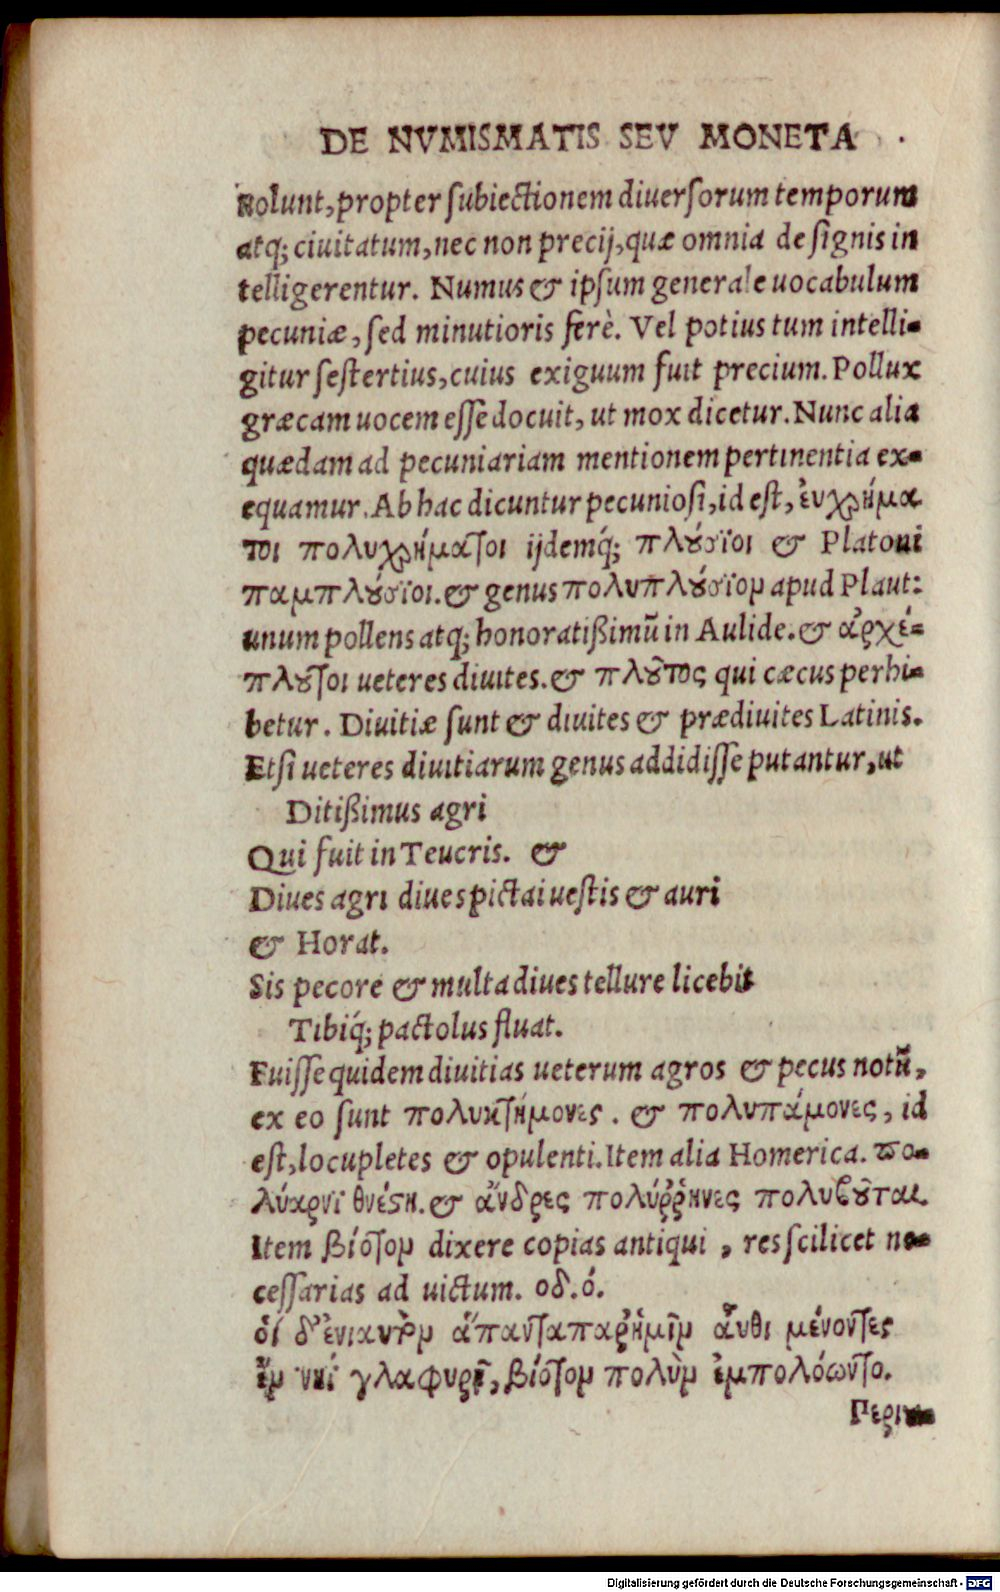 DE NVMISMATIS SEV MONETA .
nolunt, propter ſubiectionem diuerſorum temporum
atq; ciuitatum, nec non precij, quæ omnia de ſignis in
telligerentur. Numus & ipſum generale uocabulum
pecuniæ, ſed minutioris ferè. Vel potius tum intelli-
gitur ſeſtertius, cuius exiguum fuit precium. Pollux
græcam uocem eſſe docuit, ut mox dicetur. Nunc alia
quædam ad pecuniariam mentionem pertinentia ex-
equamur. Ab hac dicuntur pecunioſi, id eſt, ἐυχρήμα
τοι πολυχρήματοι ijdemq́; πλούσϊοι & Platoni
παμπλούσϊοι. & genus πολυπλούσϊον apud Plaut:
unum pollens atq; honoratißimũ in Aulide. & ἀρχέ-
πλουτοι ueteres diuites. & πλοῦτος qui cæcus perhi-
betur. Diuitiæ ſunt & diuites & prædiuites Latinis.
Etſi ueteres diuitiarum genus addidiſſe putantur, ut
Ditißimus agri
Qui fuit in Teucris. &
Diues agri diues pictai ueſtis & auri
& Horat.
Sis pecore & multa diues tellure licebit
Tibiq́; pactolus fluat.
Fuiſſe quidem diuitias ueterum agros & pecus notũ,
ex eo ſunt πολυκτήμονες. & πολυπάμονες, id
eſt, locupletes & opulenti. Item alia Homerica. πο-
λύαρνϊ θυέστη. & ἄνδρες πολύῤῥηνες πολυβοῦται.
Item βίότον dixere copias antiqui, res ſcilicet ne-
ceſſarias ad uictum. οδ. ό.
ὁί δ' ἐνιαυτὸν ἅπαντα παρ' ἡμῖν ἆυθι μένοντες
ἐν νηΐ γλαφυρῇ, βίότον πολὺν ἐμπολόωντο.
Περι-
Digitalisierung gefördert durch die Deutsche Forschungsgemeinschaft - DFG